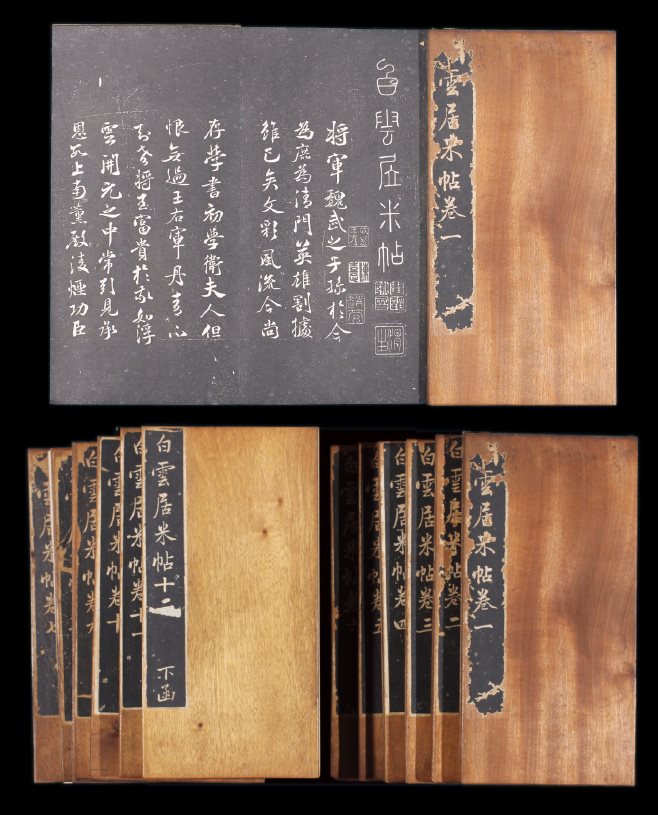 雲居米帖卷一
白雲居米帖
將軍魏武之子孫於今
為庶為清門英雄割據
雖已矣文彩風流今尚
存學書初學衛夫人但
恨無過王右軍丹青不
知老將至富貴於我如浮
雲開元之中常引見承
恩數上南薰殿淩煙功臣
雲居米帖卷一
白雲居米帖卷二
白雲居米帖卷三
白雲居米帖卷四
居米帖卷五
白雲居米帖卷
白雲居米帖十二
下函
白雲居米帖十一
白雲居米帖卷十
白雲居米帖卷九
雲居米帖卷七